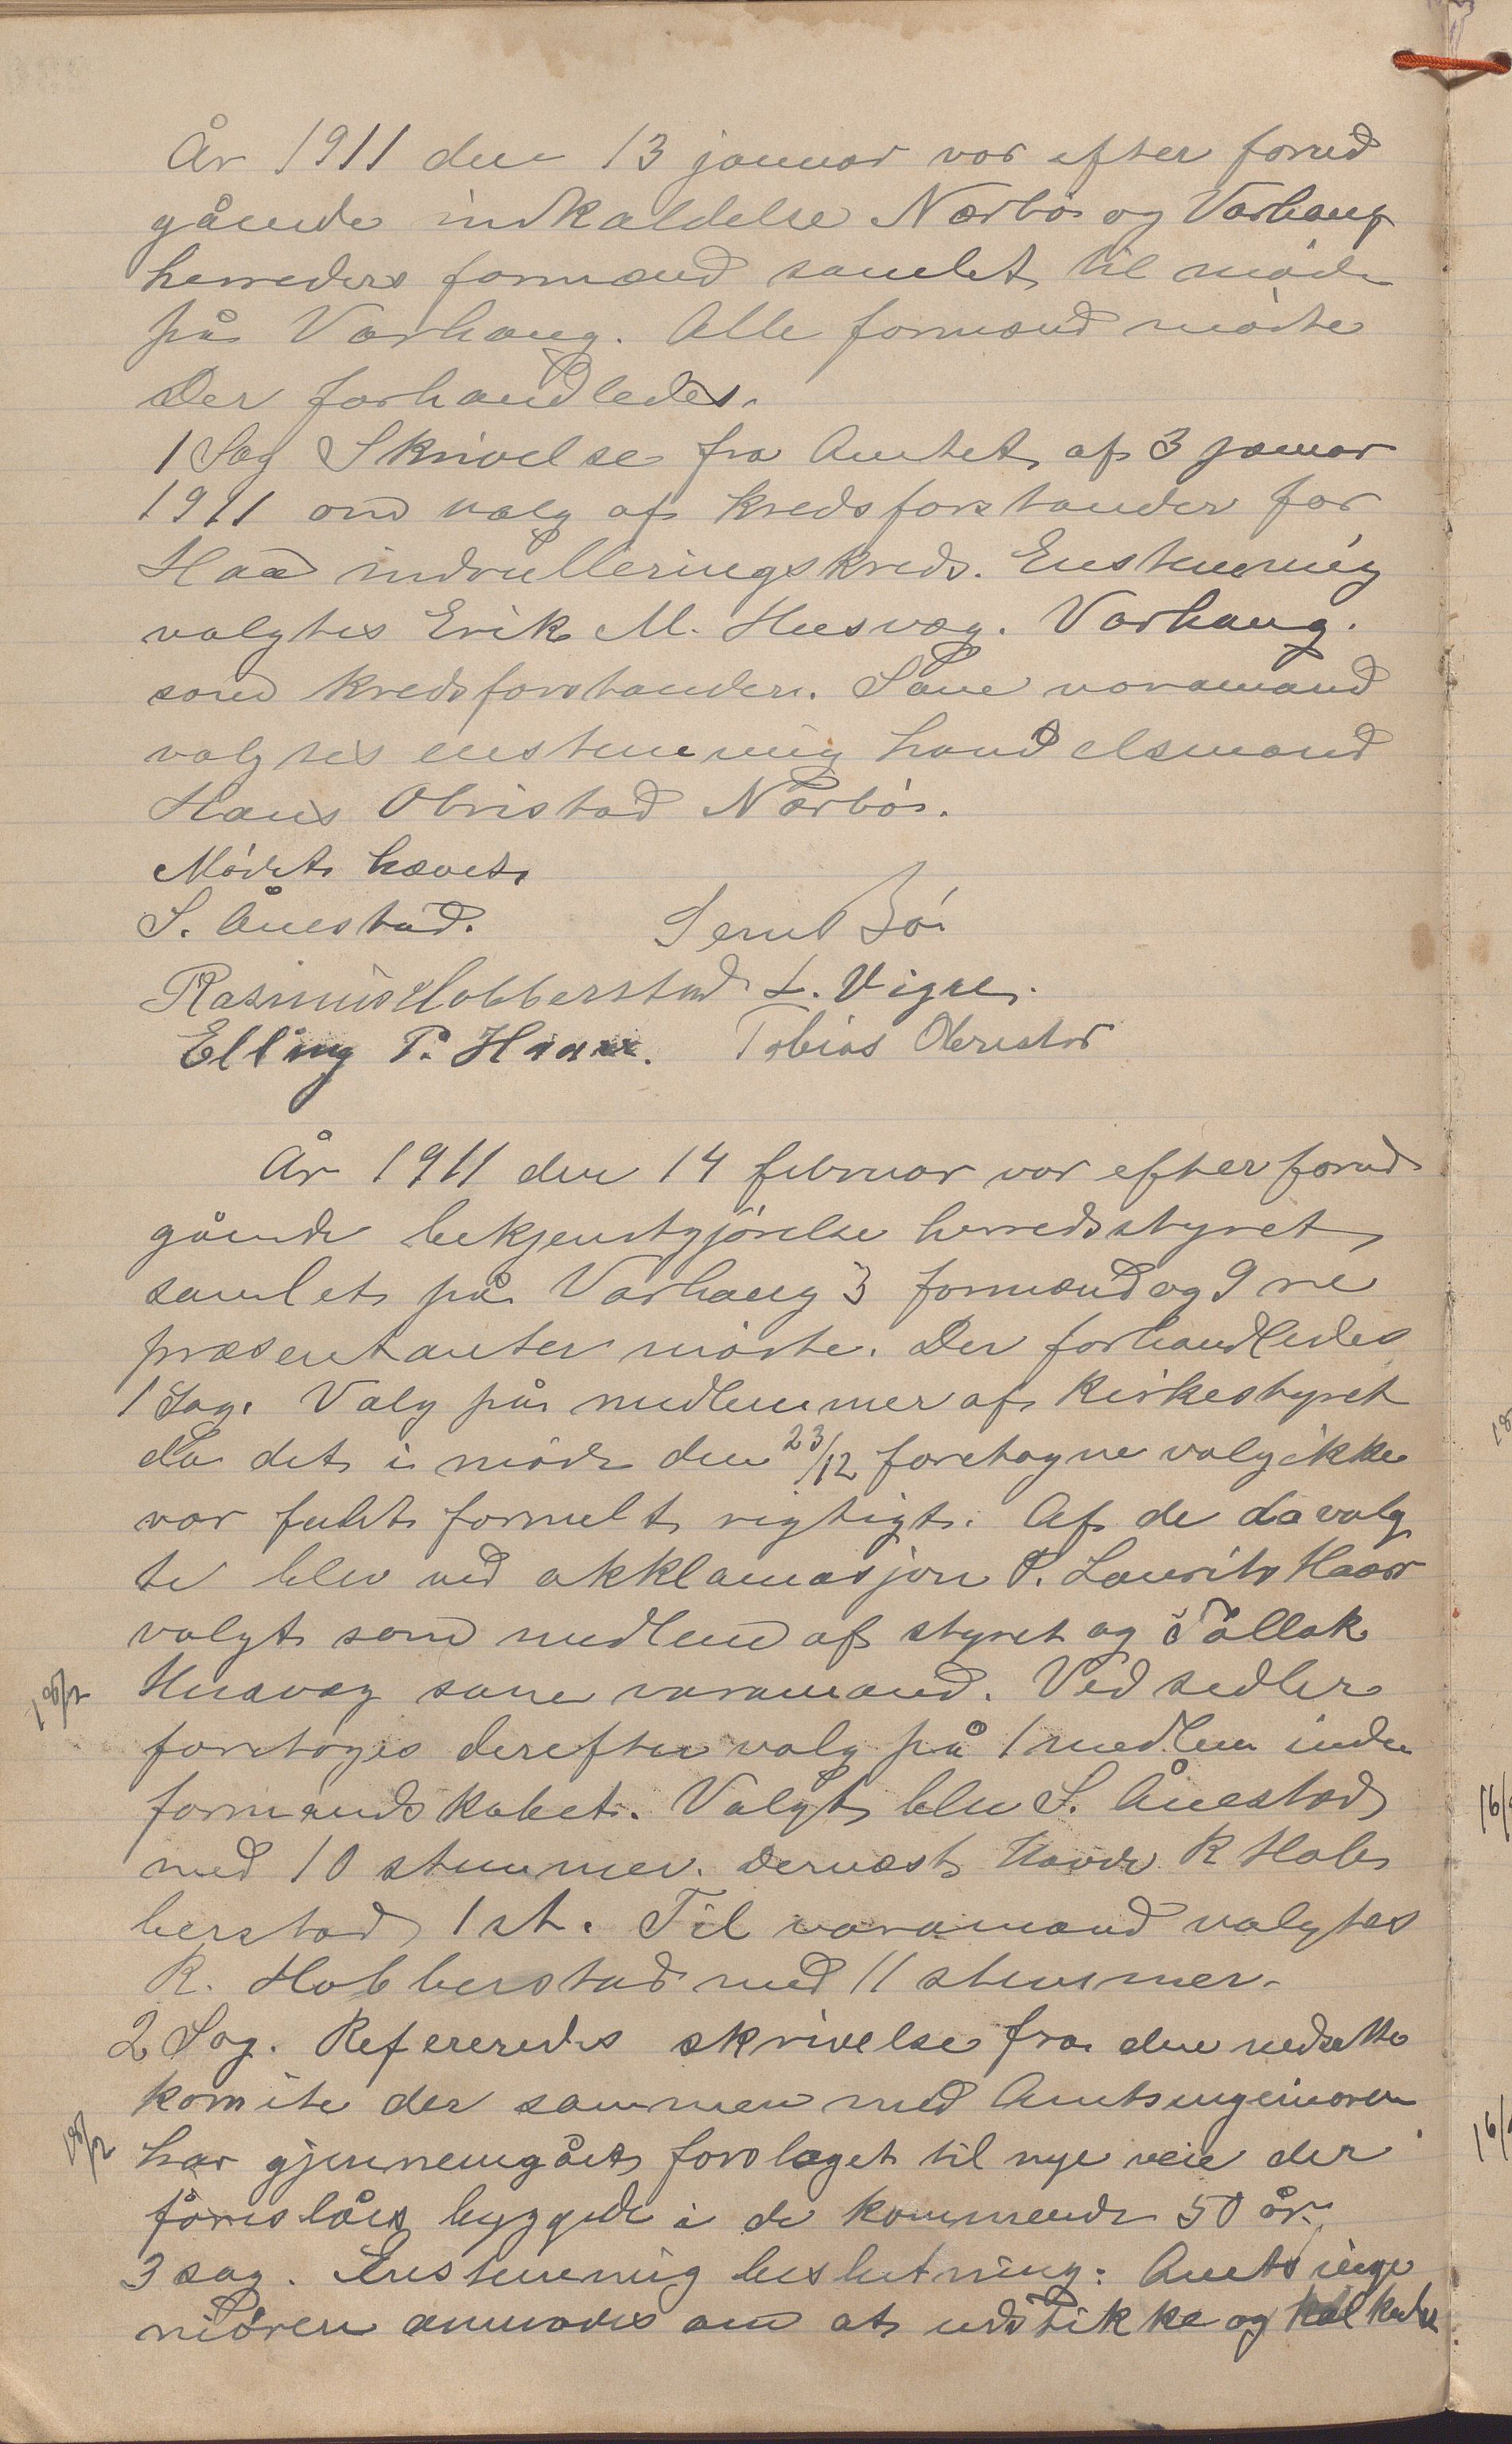 År 1911 den 13 januar var efter forud
gående indkaldelse Nærbø og Varhaug
herreders formænd samlet til møde
på Varhaug. Alle formænd mødte
Der forhandledes.
1 Sag Skrivelse fra Amtet af 3 januar
1911 om valg af kredsforstander for
Haa indrulleringskreds. Enstemmig
valgtes Erik M. Husvæg. Varhaug.
som kredsforstander. Som varamand
valgtes enstemmig handelsmand
Hans Obristad Nærbø.
Mødet hævet.
S. Ånestad. Bø.
Rasmus Hobberstad L. Vigre.
Elling P. Haar. Tobias Obrestad
År 1911 den 14 februar var efter forud
gående bekjentgjørelse herredsstyret
samlet på Varhaug 3 formænd og 9 re
præsentanter mødte. Der forhandledes
1 Sag. Valg på medlemmer af kirkestyret
da det i møde den 23/12 foretagne valg ikke
var fuldt formelt rigtigt. Af de da valg
te blev ved akklamasjon P. Laurits Haar
valgt som medlem af styret og Tållak
Husvæg som varamand. Ved sedler
foretoges derefter valg på 1 medlem inden
formandskabet. Valgt blev S. Ånestad
med 10 stemmer. Dernæst havde R Hob
berstad 1 st. Til varamand valgtes
R. Hobberstad med 11 stemmer.
2 Sag. Refereredes skrivelse fra den nedsatte
komite der sammen med Amtsingeniøren
har gjennemgået forslaget til nye veie der
foreslåes byggede i de kommende 50 år.
3 sag. Enstemmig beslutning: Amtsinge
niøren anmodes om at udstikke og kalkulere
18/2
18/2
16/
16/